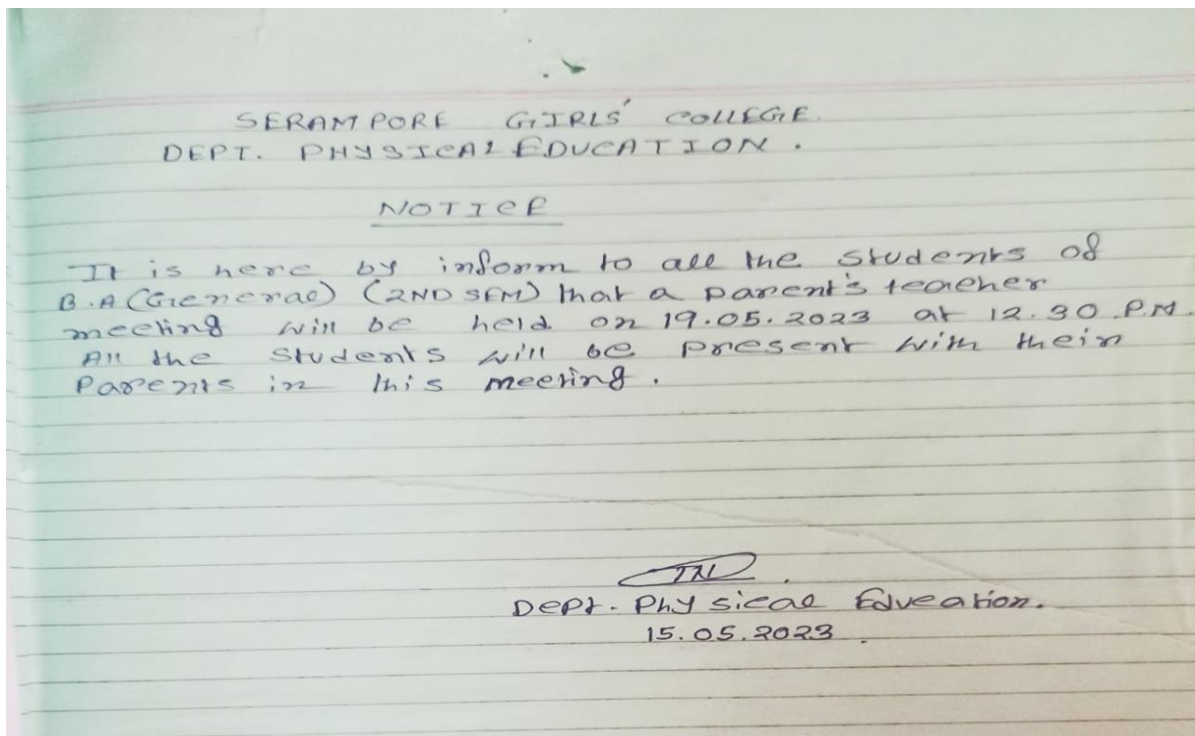 SERAMPORE GIRLS' COLLEGE.
DEPT. PHYSICAL EDUCATION.
NOTICE
It is here by inform to all the students of
B.A (General) (2ND SEM) that a parent's teacher
meeting will be held on 19.05.2023 at 12.30 P.M.
All the students will be present with their
Parents in this meeting.
Dept. Physical Education.
15.05.2023